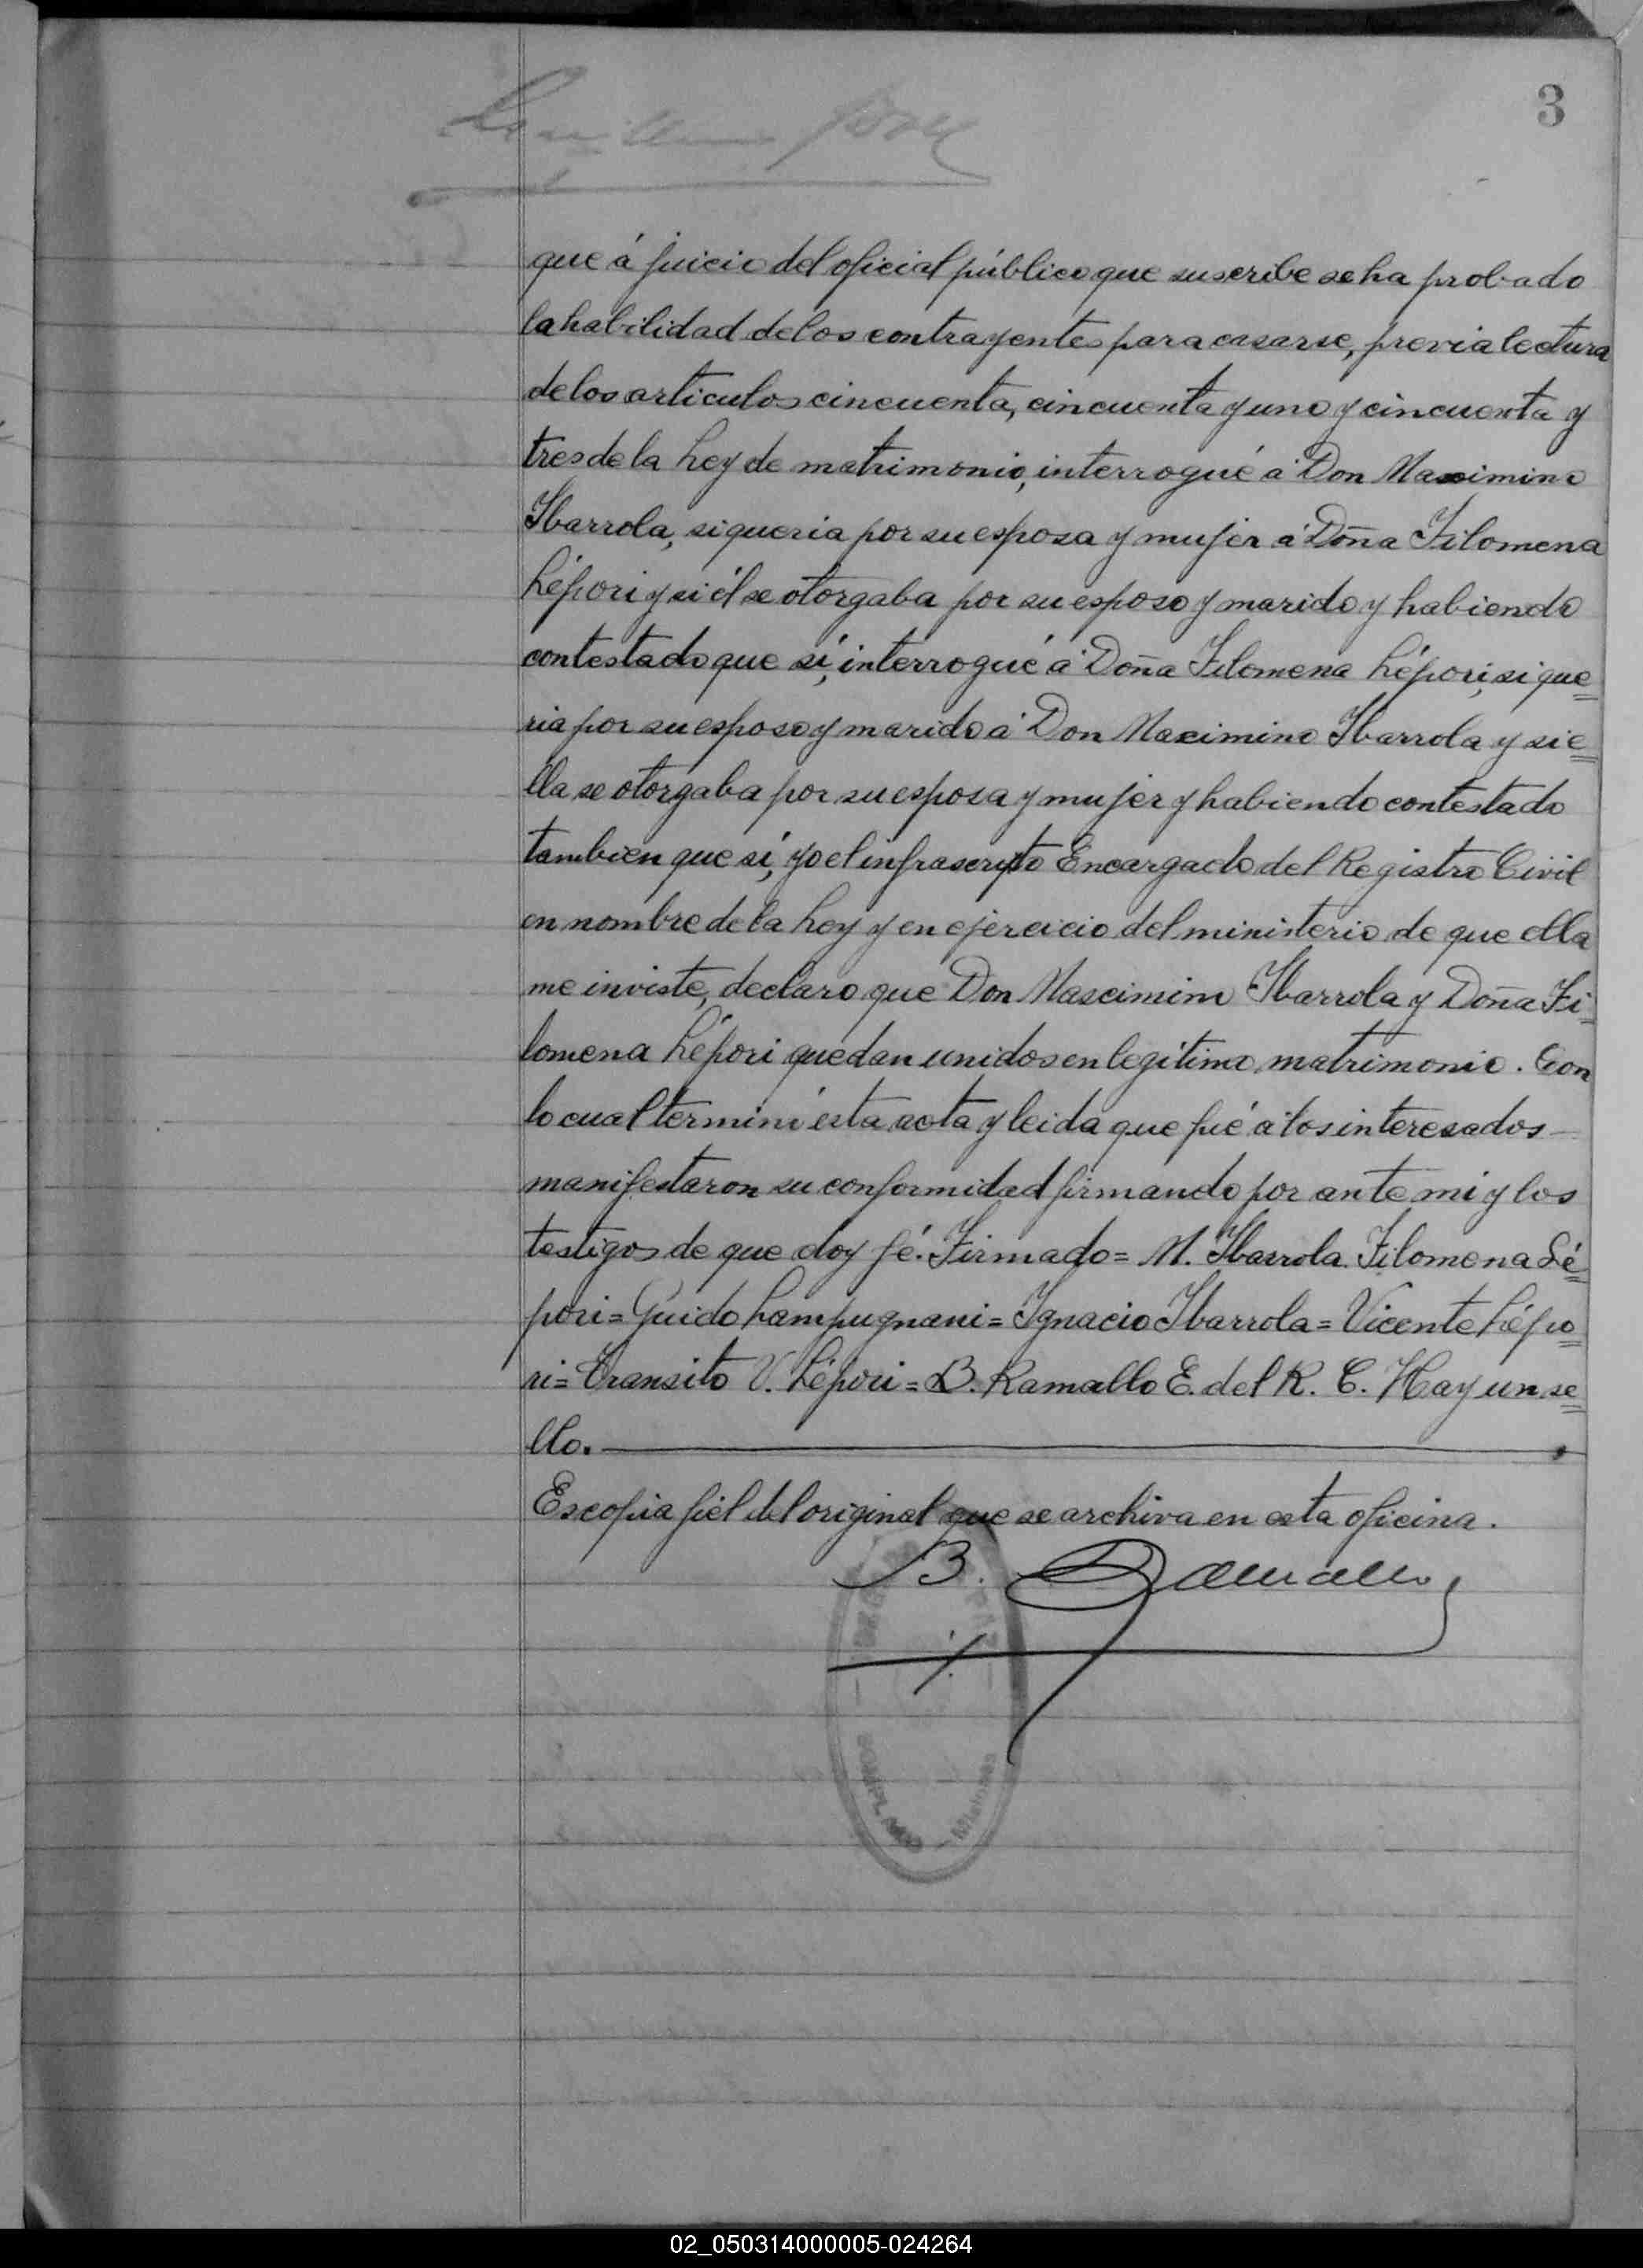 3
que á juicio del oficial público que suscribe se ha probado
la habilidad de los contrayentes para casarse, previa lectura
de los articulos cincuenta, cincuenta y uno y cincuenta y
tres de la Ley de matrimonio, interrogué á Don Maximino
Ibarrola, si queria por su esposa y mujer á Doña Filomena
Lépori y si él se otorgaba por su esposo y marido y habiendo
contestado que sí, interrogué á Doña Filomena Lépori, si que=
ria por su esposo y marido á Don Maximino Ibarrola y si e=
lla se otorgaba por su esposa y mujer y habiendo contestado
tambien que sí, yo el infrascripto Encargado del Registro Civil
en nombre de la Ley y en ejercicio del ministerio de que ella
me inviste, declaro que Don Maximino Ibarrola y Doña Fi=
lomena Lépori quedan unidos en legítimo matrimonio. Con
lo cual terminó esta acta y leida que fué á los interesados
manifestaron su conformidad firmando por ante mi y los
testigos de que doy fé. Firmado= M. Ibarrola Filomena Lé=
pori= Guido Lampugnani= Ignacio Ibarrola= Vicente Lépo=
ri= Transito V. Lépori= B. Ramallo E. del R. C. Hay un se=
llo.
Es copia fiel del original que se archiva en esta oficina.
B. Ramallo
02_050314000005-024264